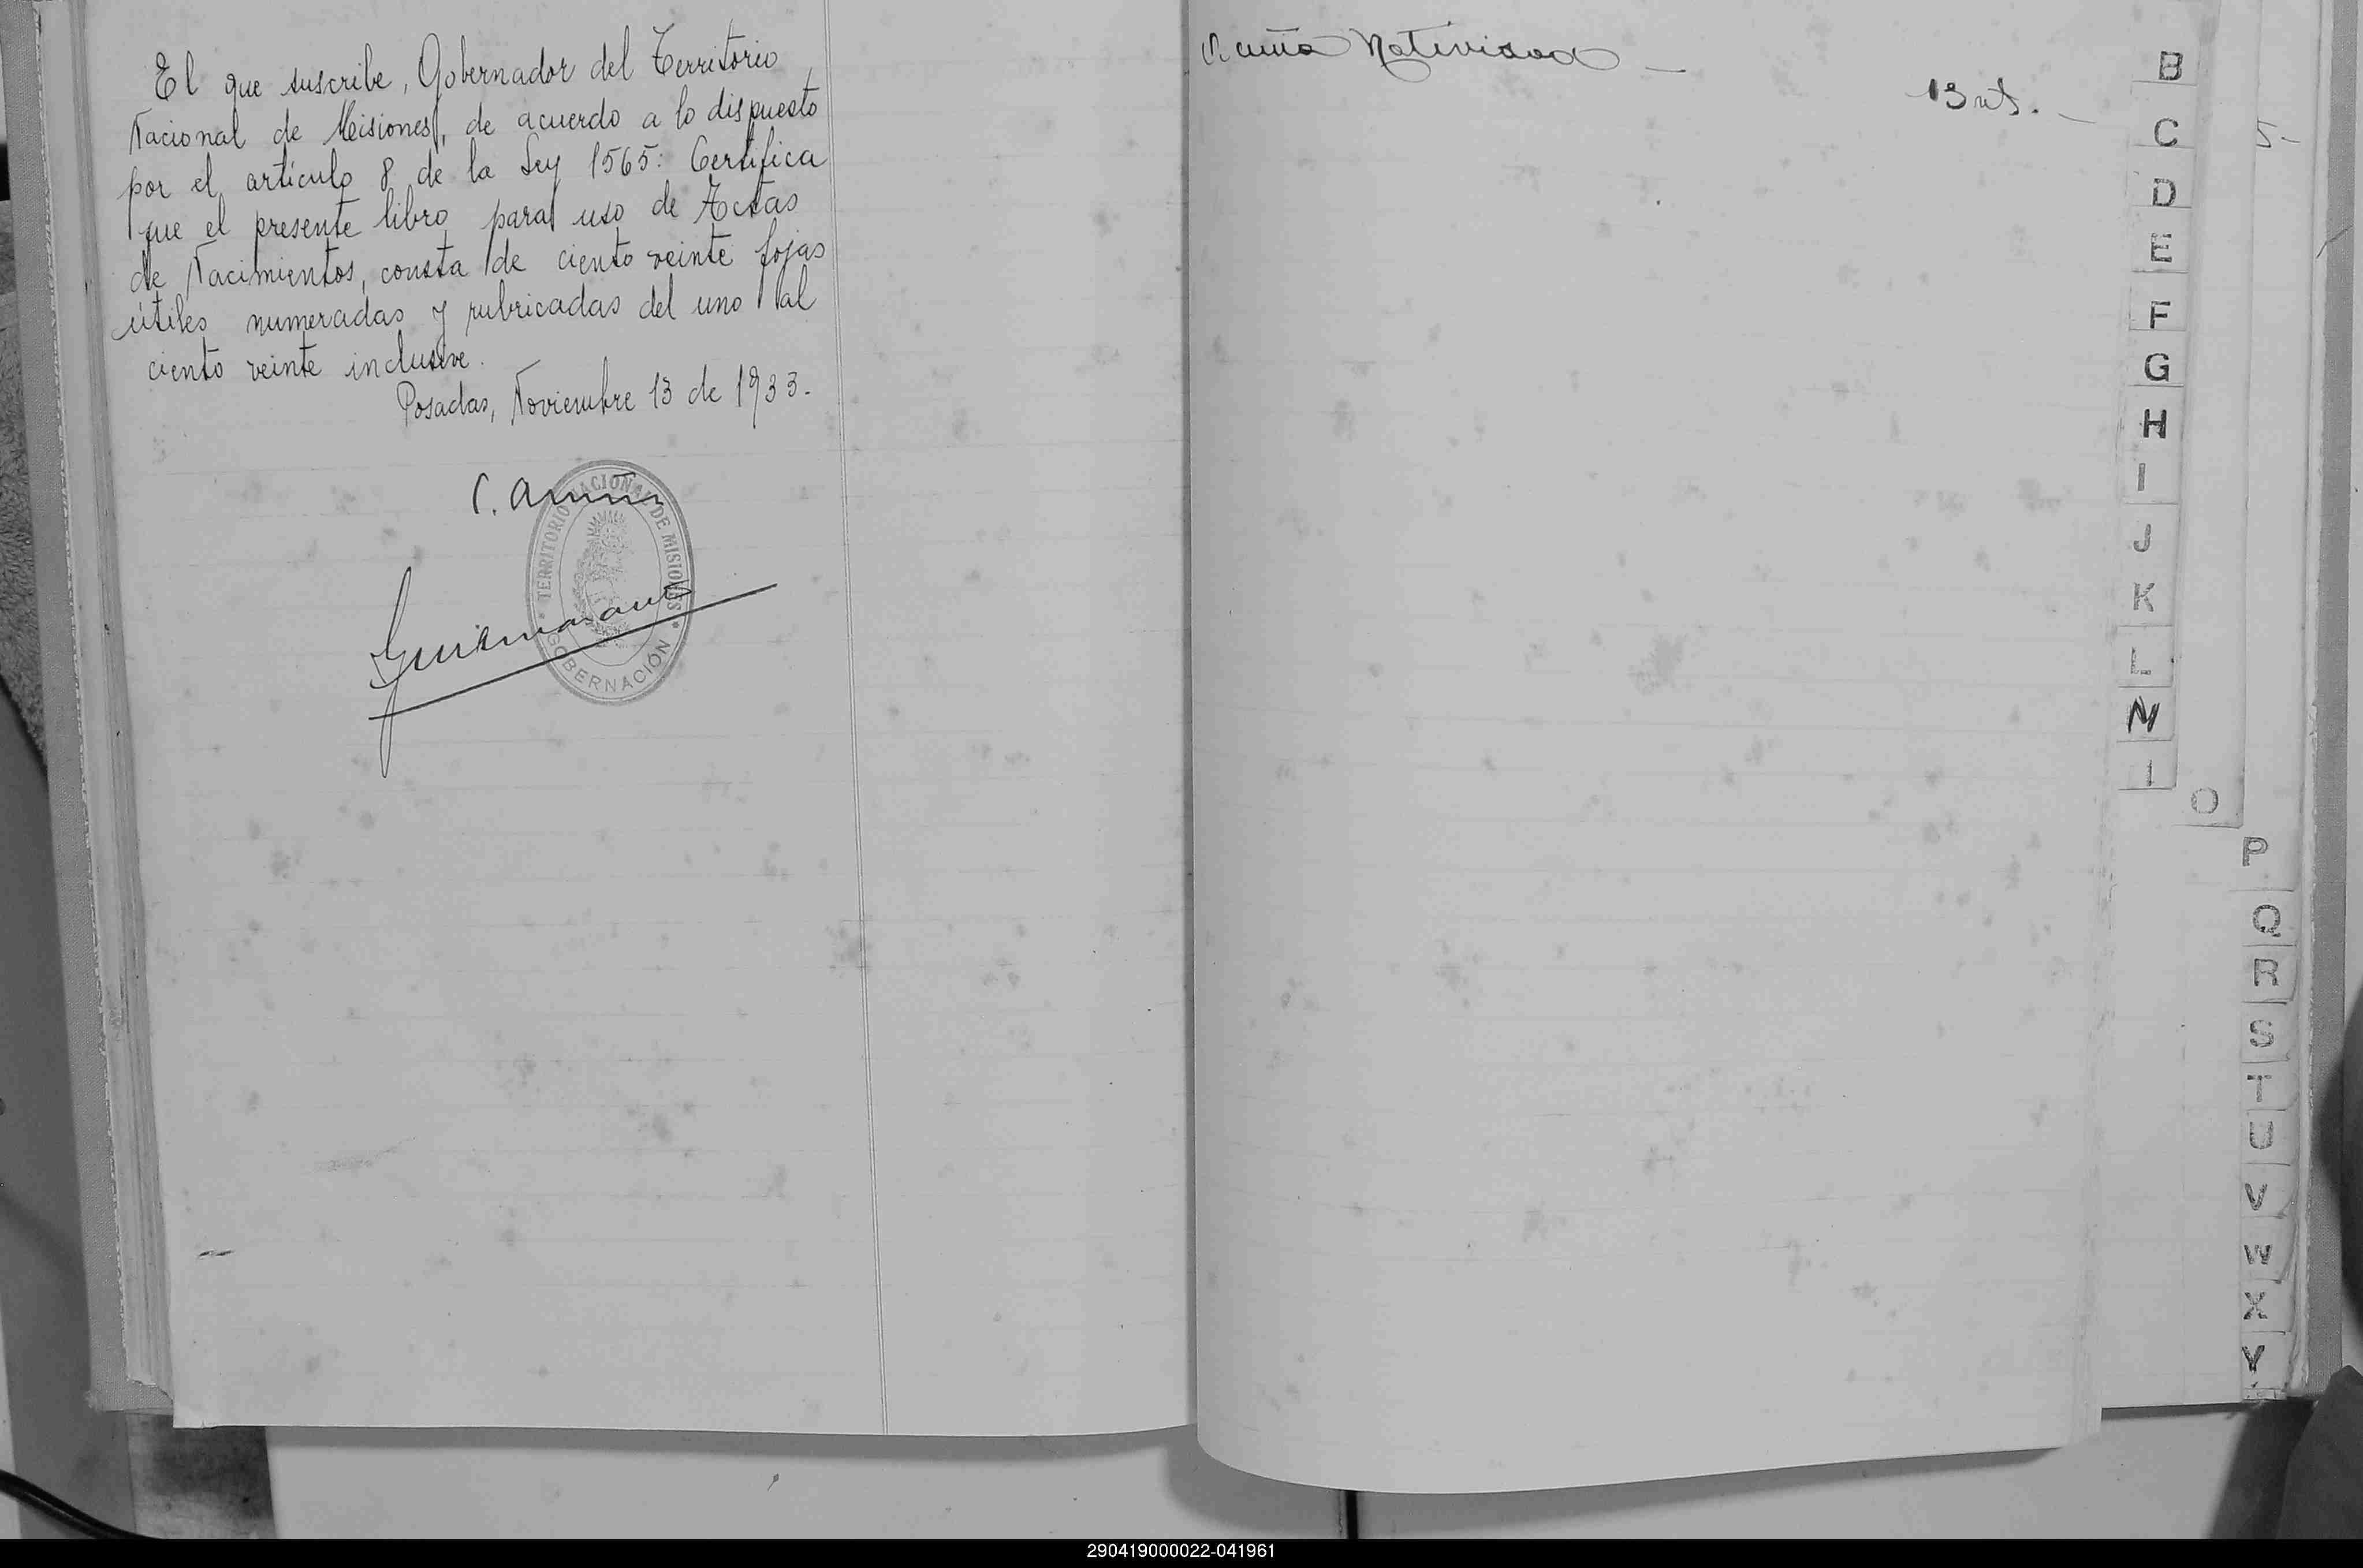 El que suscribe, Gobernador del Territorio
Nacional de Misiones, de acuerdo a lo dispuesto
por el artículo 8 de la Ley 1565: Certifica
que el presente libro para uso de Actas
de Nacimientos, consta de ciento veinte fojas
útiles numeradas y rubricadas del uno al
ciento veinte inclusive.
Posadas, Noviembre 13 de 1933.-
TERRITORIO NACIONAL DE MISIONES
GOBERNACIÓN
Acuña Natividad —
13
5-
B
C
D
E
F
G
H
I
J
K
L
N
O
P
Q
R
S
T
U
V
W
X
Y
290419000022-041961